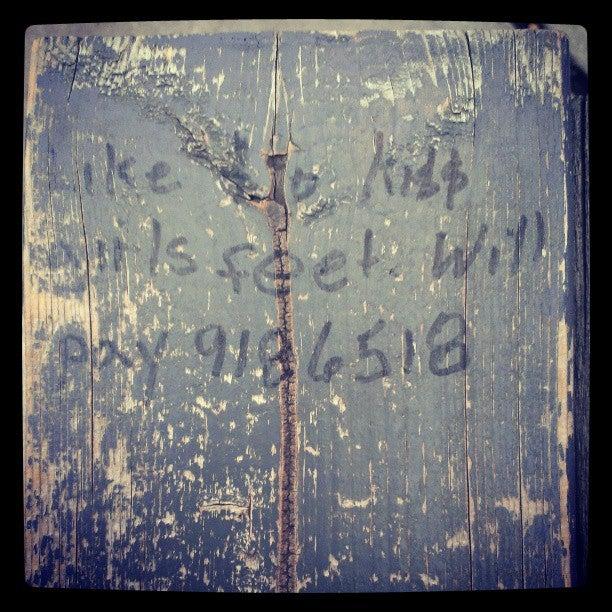 Like to kiss
girls feet. Will
pay 9186518